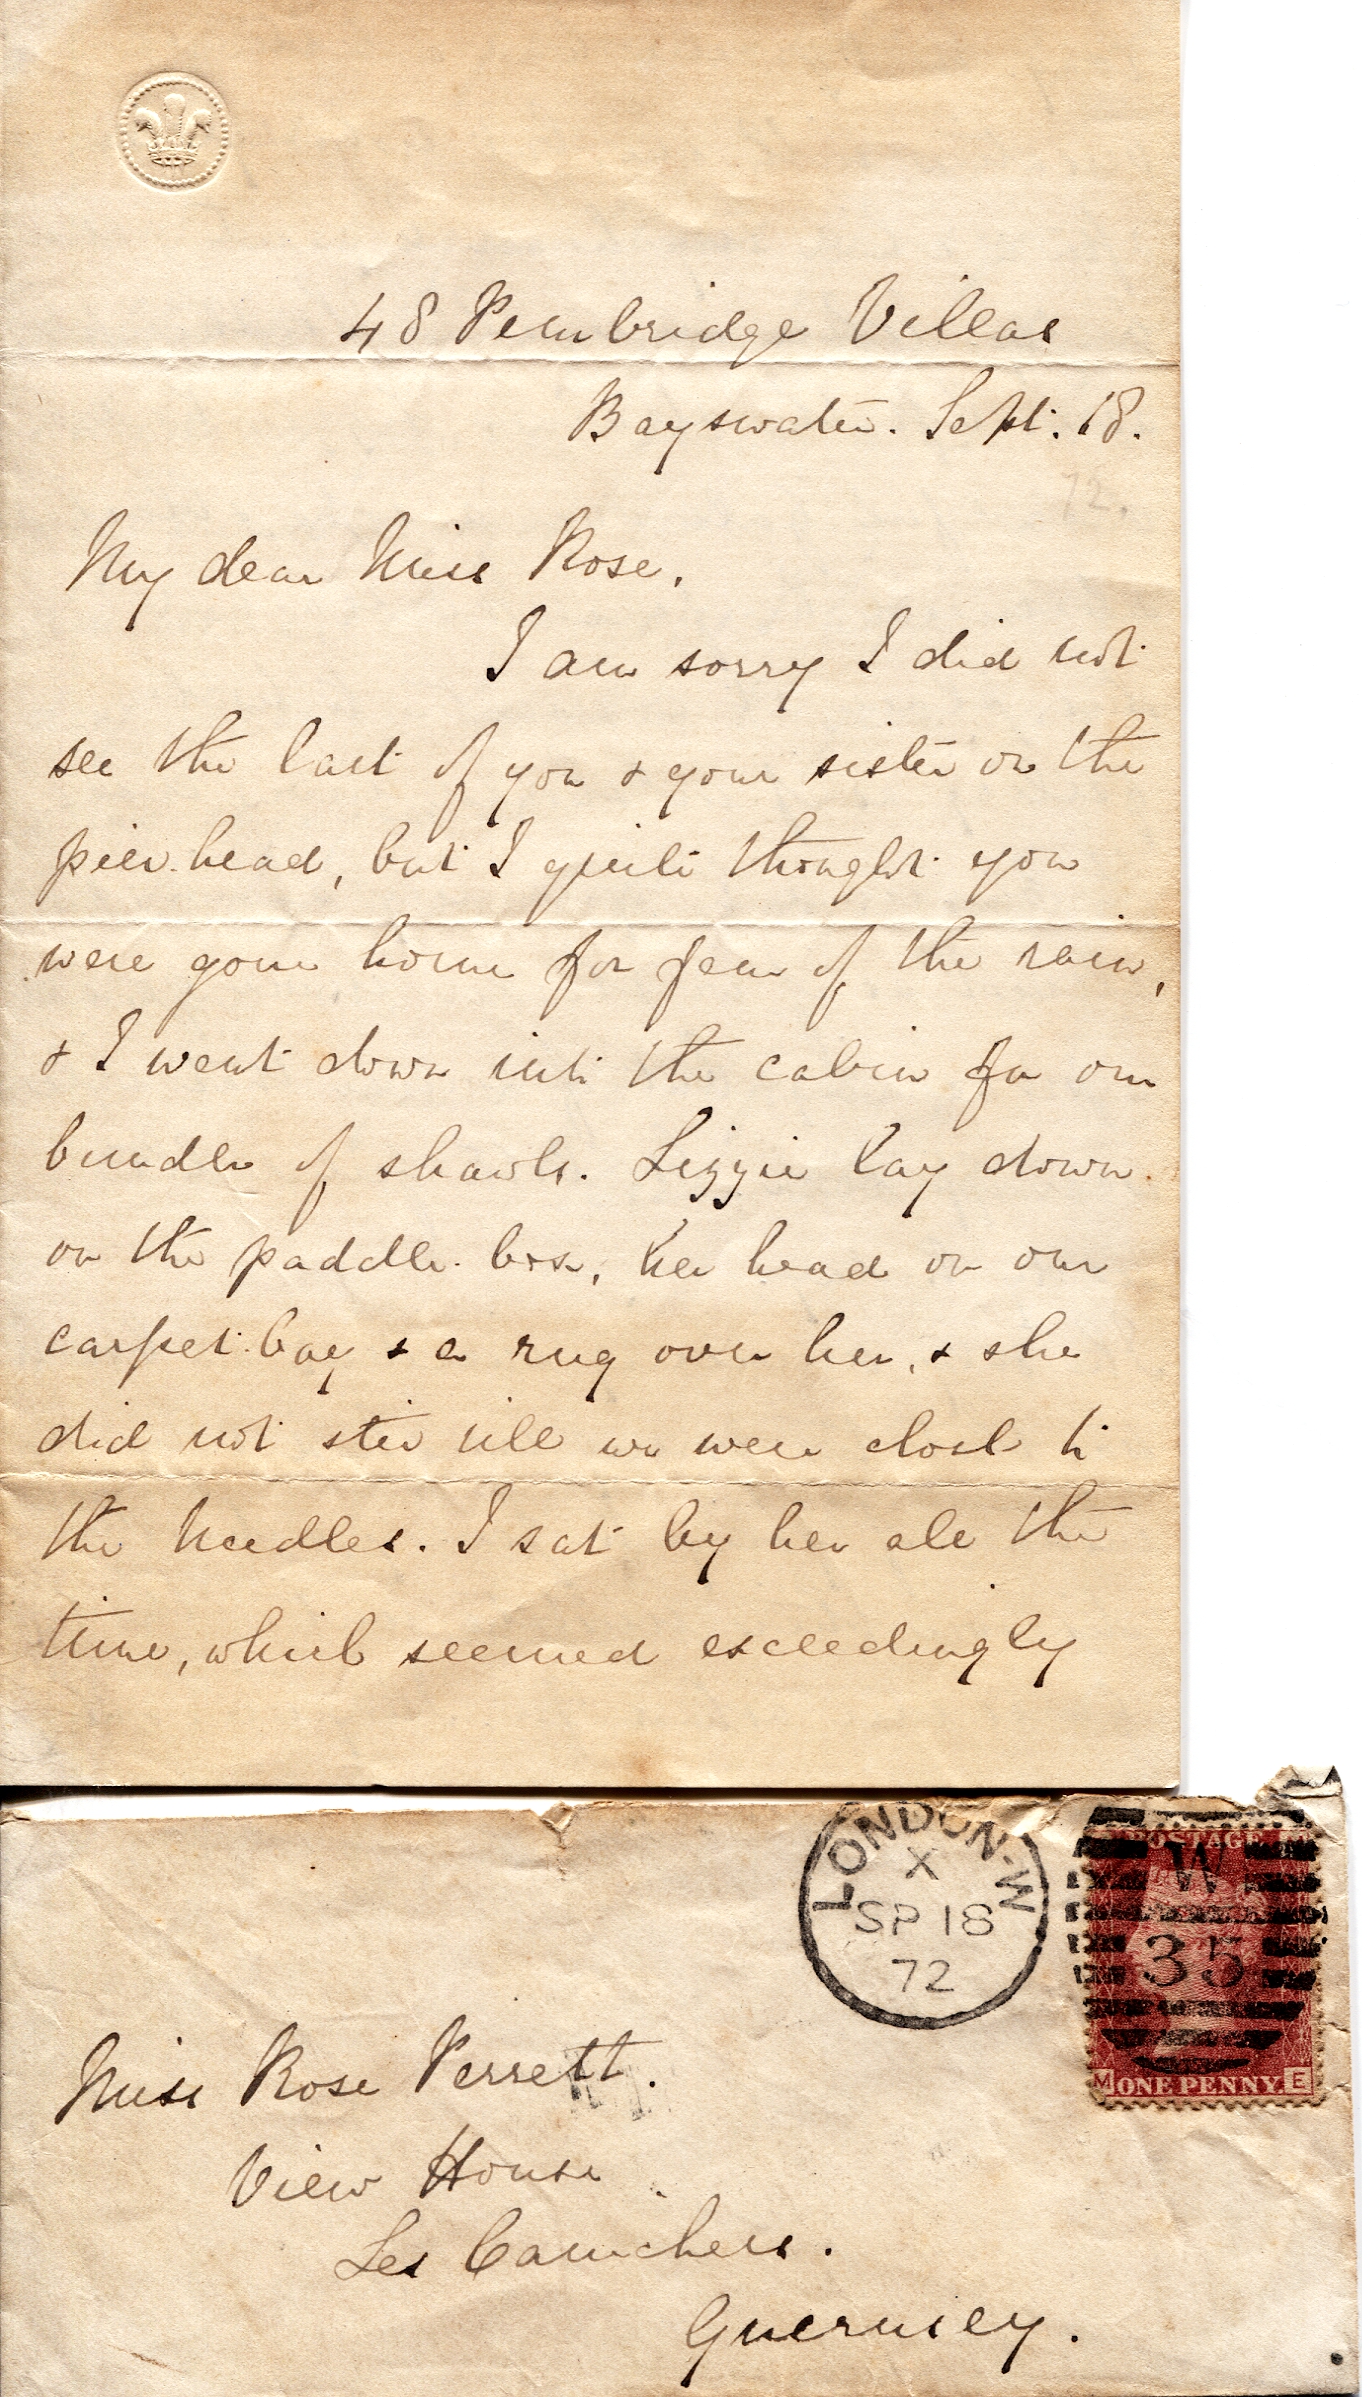 48 Pembridge Villas
Bayswater. Sept. 18.
72.
My dear Miss Rose,
I am sorry I did not
see the last of you & your sister on the
pier-head, but I quite thought you
were gone home for fear of the rain,
& I went down into the cabin for our
bundle of shawls. Lizzie lay down
on the paddle-box, her head on our
carpet-bag & a rug over her, & she
did not stir till we were close to
the Needles. I sat by her all the
time, which seemed exceedingly
LONDON-W
X
SP 18
72
POSTAGE
W
35
M ONE PENNY. E
Miss Rose Perrett.
View House
Les Canichers.
Guernsey.